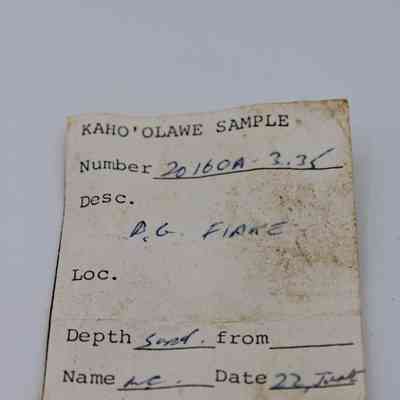 KAHO'OLAWE SAMPLE
Number 20160A-3.35
Desc.
FLAKE
Loc.
Depth from
Name Date 22,